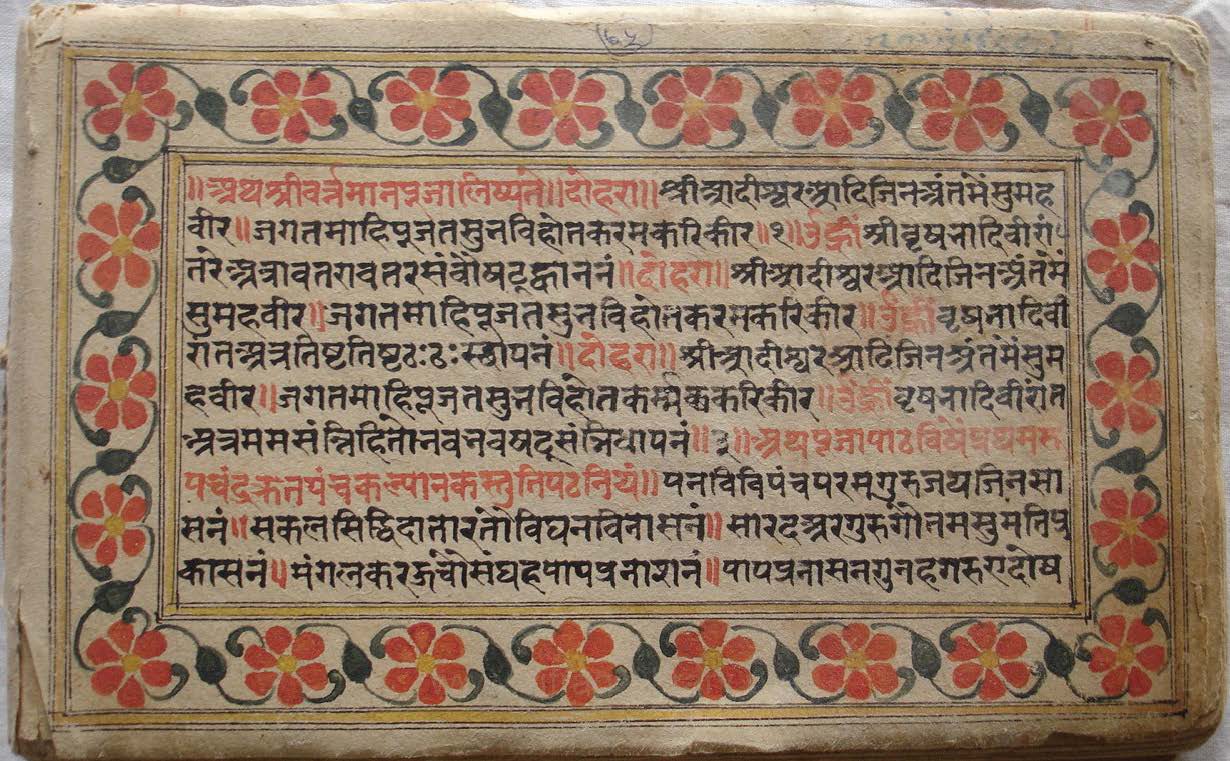 ॥अथश्रीवर्त्तमानपूजालिष्यते॥दोहरा॥श्रीआदीश्वरआदिजिनअंतमेंसुमह
वीर॥जगतमाहिपूजतसुनविहोतकरमकरिकीर॥१॥उँह्रींश्रीवृषभादिवीरां
तंरेअत्रावतरावतरसंवौषट्आह्वाननं॥दोहरा॥श्रीआदीश्वरआदिजिनअंतंमें
सुमहवीर॥जगतमाहिपूजतसुनविहोतकरमकरिकीर॥उँह्रींवृषभादिवी
रांतअत्रतिष्टतिष्टठःठःस्छापनं॥दोहरा॥श्रीआदीश्वरआदिजिनअंतंमेंसुम
हवीर॥जगतमाहिपूजतसुनविहोतकर्म्मक्यकरिकीर॥उँह्रींवृषभादिवीरांत
अत्रममसंन्निहितोभवभववषट्संन्निधापनं॥३॥अथपूजापाठविषेंप्रथम
पंचकल्पानकस्तुतिपठनियं॥पनविविपंचपरमगुरुजयजिनसा
सनं॥सकलसिद्धिदातोरतोविघनविनासनं॥सारदअरगुरुगौतमसुमतिप्र
कासनं॥मंगलकरजचौसंघहपापप्रनाशनं॥पापप्रनासनगुनहगरुरादोष